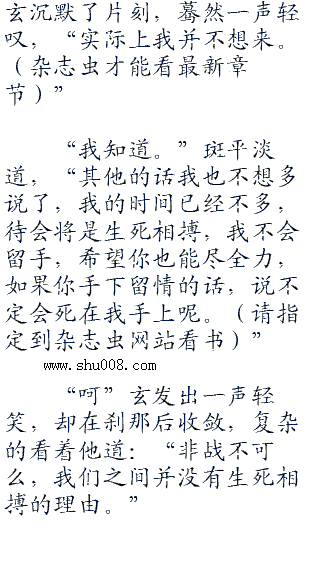 玄沉默了片刻，蓦然一声轻
叹，“实际上我并不想来。
（杂志虫才能看最新章
节）”
“我知道。”斑平淡
道，“其他的话我也不想多
说了，我的时间已经不多，
待会将是生死相搏，我不会
留手，希望你也能尽全力，
如果你手下留情的话，说不
定会死在我手上呢。（请指
定到杂志虫网站看书）”
www.shu008.com
“呵”玄发出一声轻
笑，却在刹那后收敛，复杂
的看着他道：“非战不可
么，我们之间并没有生死相
搏的理由。”